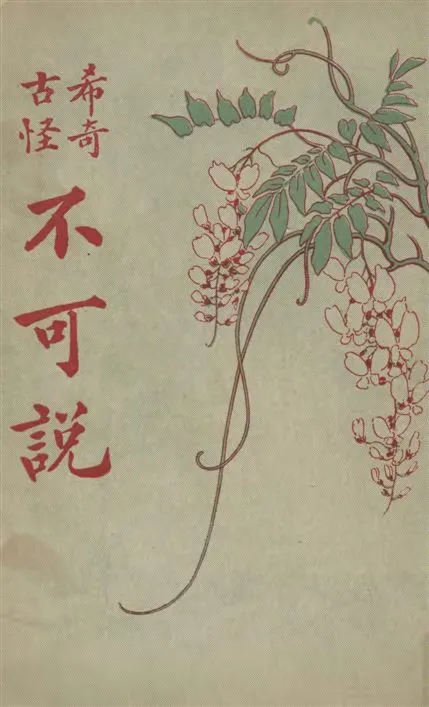 希奇
古怪
不可説